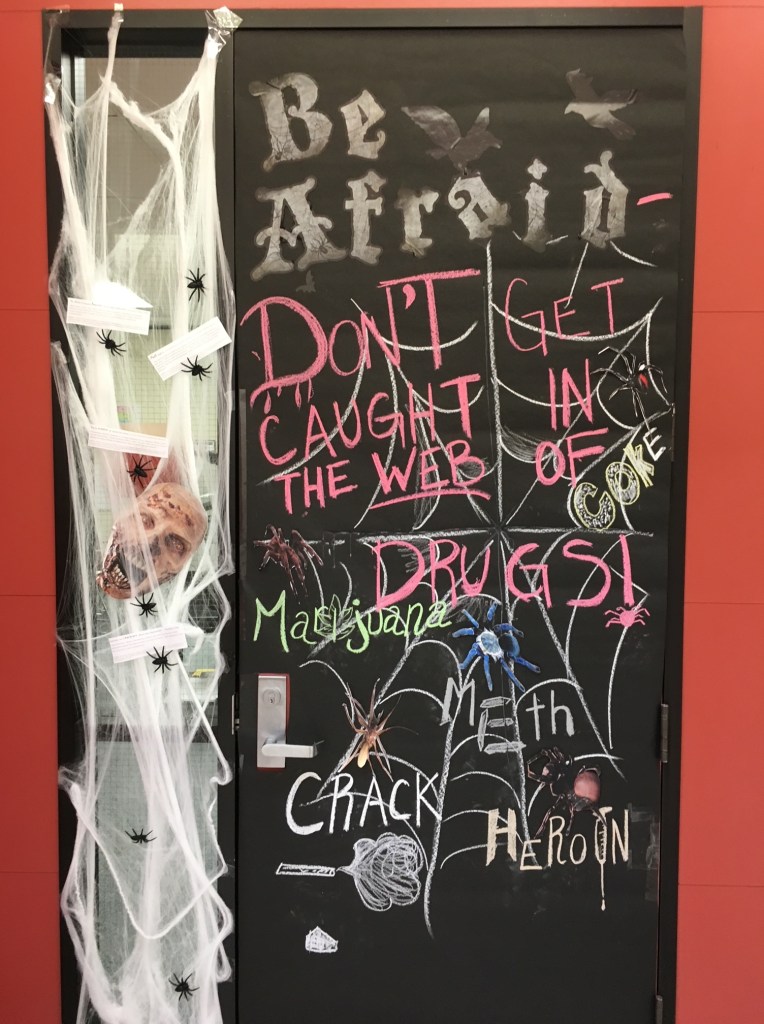 Be
Afraid-
DON'T GET
CAUGHT IN
THE WEB OF
COKE
DRUGS!
Marijuana
METh
CRACK
HEROIN